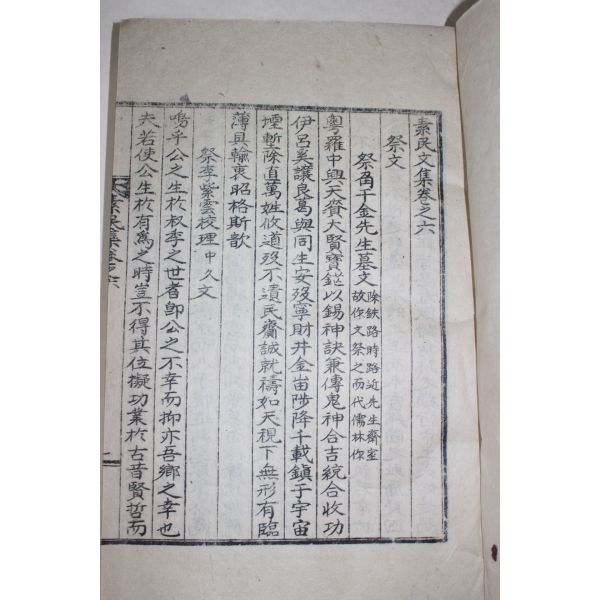 素民文集卷之六
祭文
祭角干金先生墓文 除鉄路時路近先生齋室
故作文祭之而代儒林作
粤羅中興天賚大賢寶鎰以錫神訣兼傳鬼神合吉統合收功
伊呂奚讓良葛與同生安歿寧財井金宙陟降千載鎭于宇宙
堙塹除直萬姓攸道歿不瀆民齋誠就禱如天視下無形有臨
薄具輸衷昭格斯歆
祭李紫雲校理中久文
嗚乎公之生於叔季之世者卽公之不幸而抑亦吾鄕之幸也
夫若使公生於有爲之時豈不得其位擬功業於古昔賢哲而
素民集卷之六